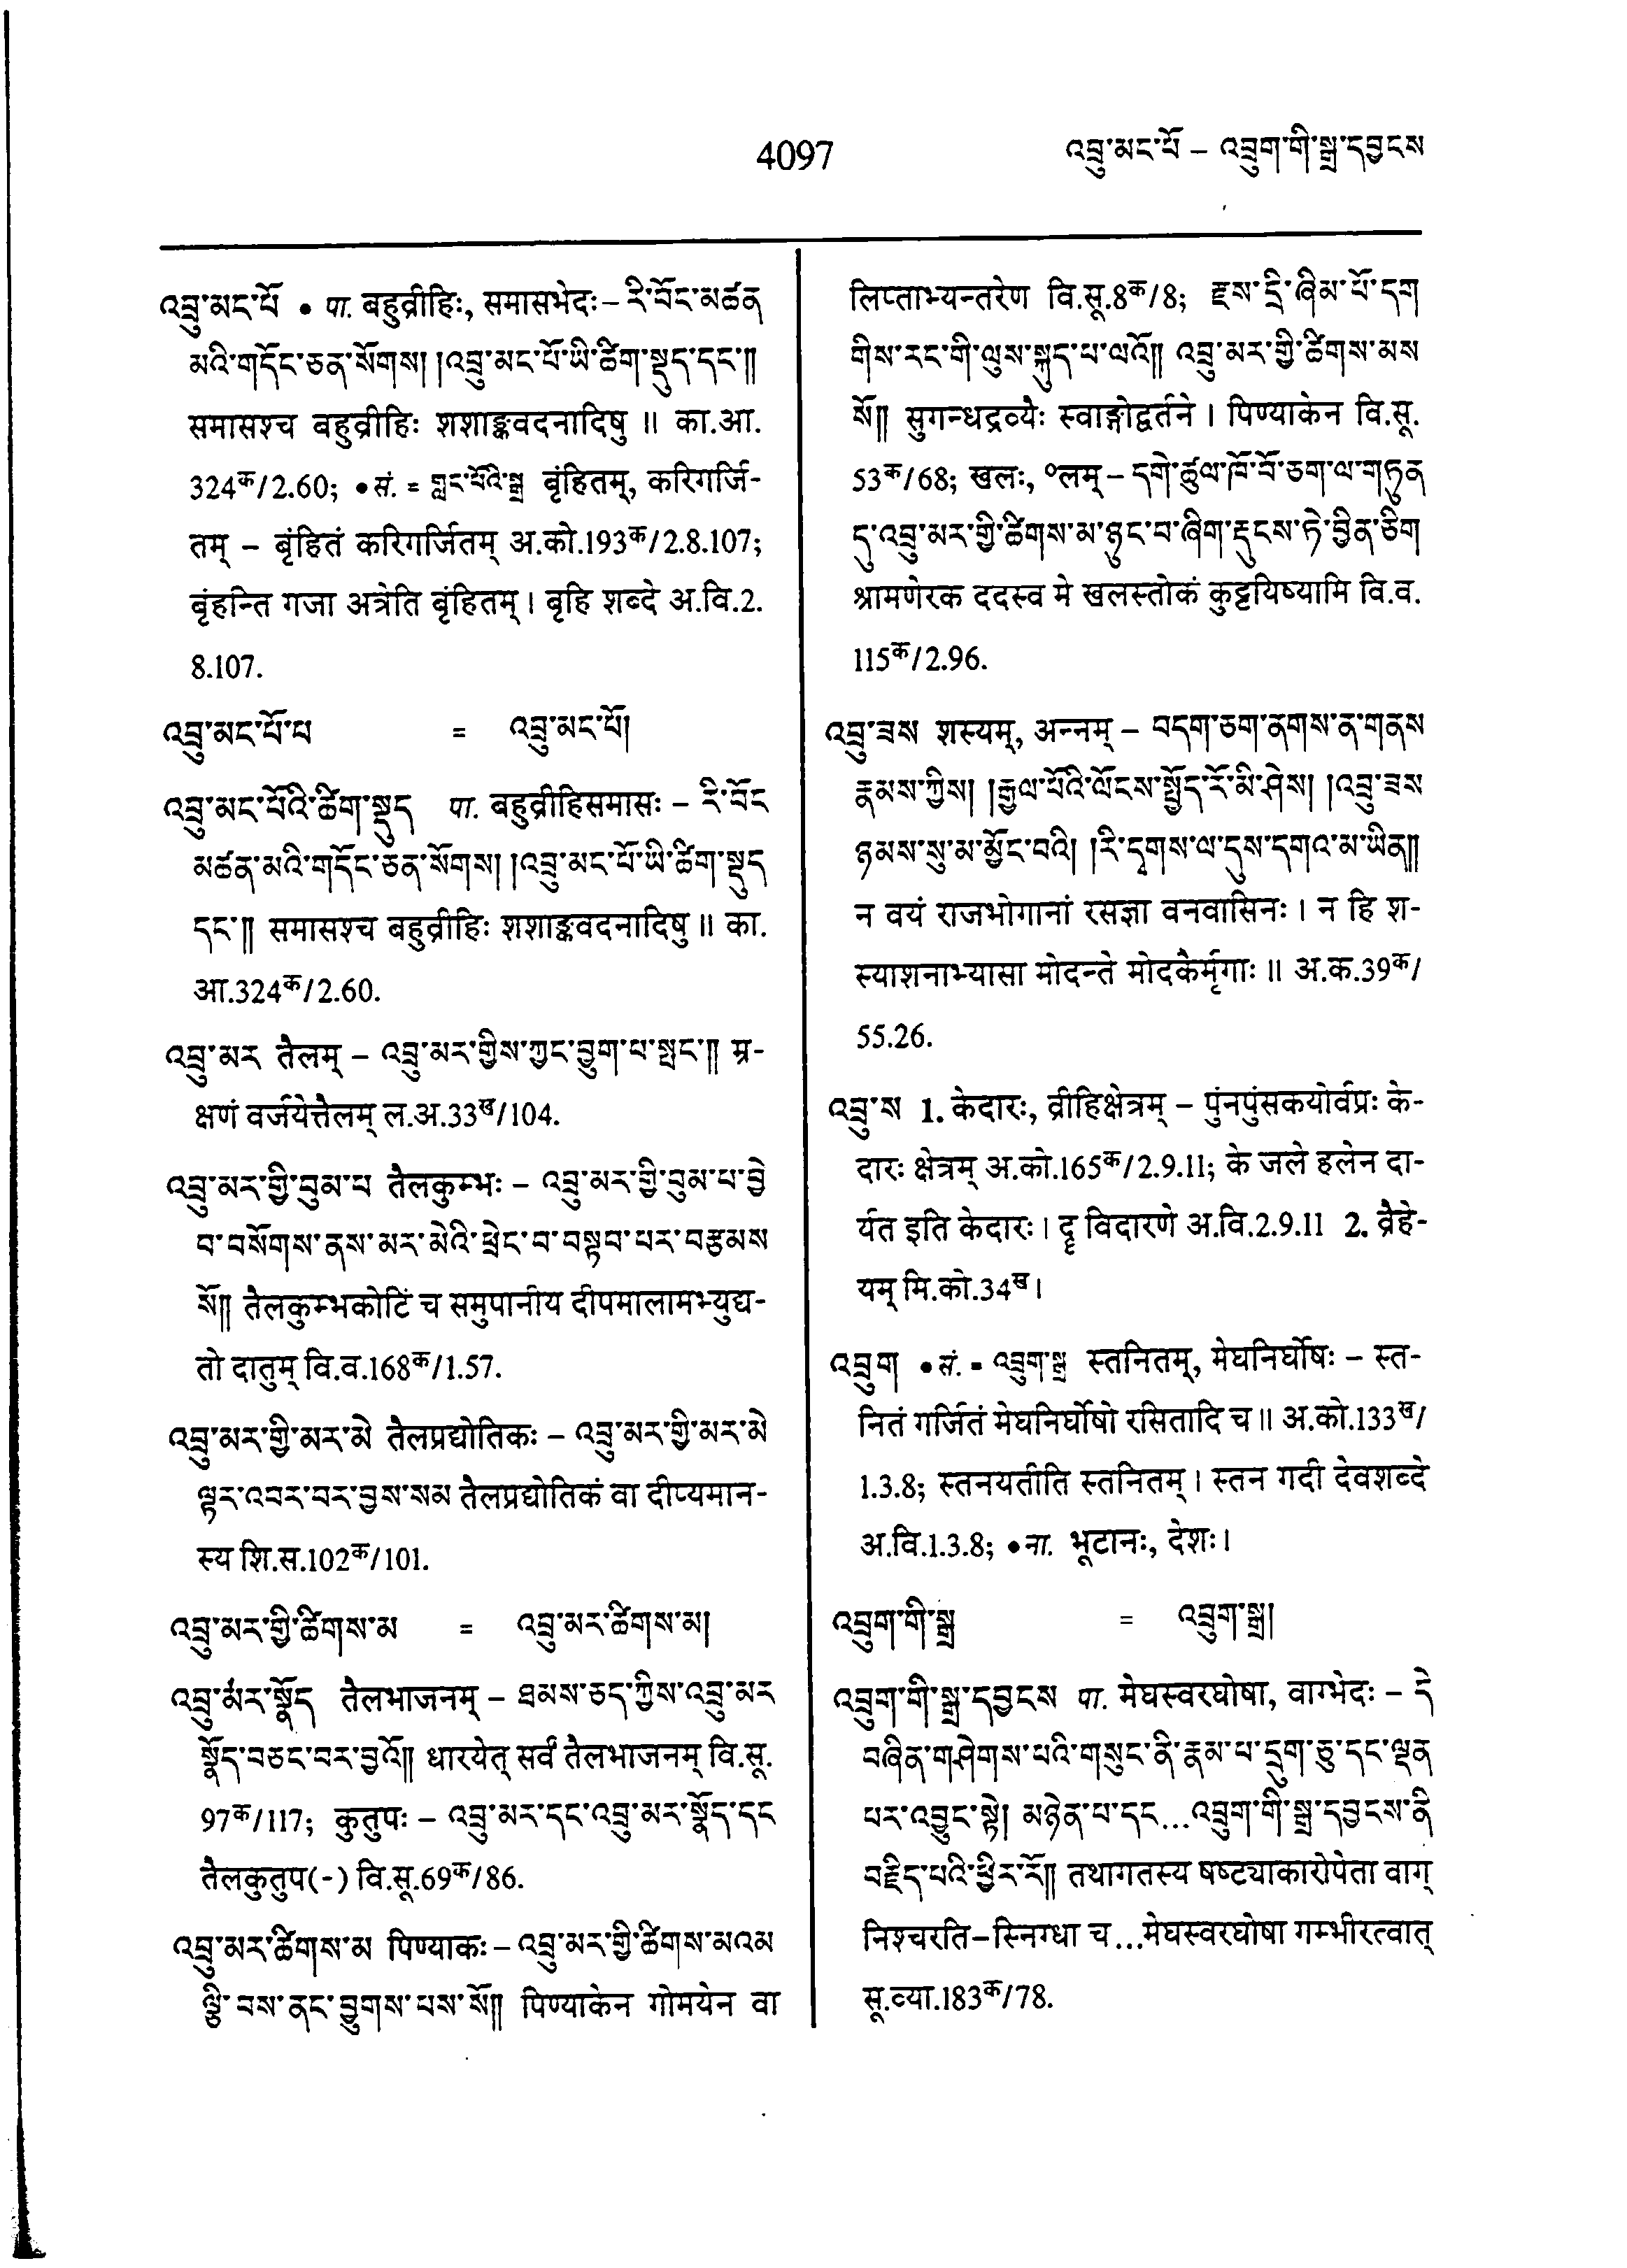 4097
འབྲུ་མང་པོ – འབྲུག་གི་སྒྲ་དབྱངས
འབྲུ་མང་པོ • पा. बहुव्रीहिः, समासभेदः – རི་བོང་མཚན
མའི་གདོང་ཅན་སོགས། །འབྲུ་མང་པོ་ཡི་ཚིག་སྡུད་དང་༎
समासश्च बहुव्रीहिः शशाङ्कवदनादिषु ॥ का.आ.
324क/2.60; • सं. = གླང་པོའི་སྒྲ बृंहितम्, करिगर्जि-
तम् – बृंहितं करिगर्जितम् अ.को.193क/2.8.107;
बृंहन्ति गजा अत्रेति बृंहितम् । बृहि शब्दे अ.वि.2.
8.107.
འབྲུ་མང་པོ་པ = འབྲུ་མང་པོ།
འབྲུ་མང་པོའི་ཚིག་སྡུད पा. बहुव्रीहिसमासः – རི་བོང
མཚན་མའི་གདོང་ཅན་སོགས། །འབྲུ་མང་པོ་ཡི་ཚིག་སྡུད
དང་༎ समासश्च बहुव्रीहिः शशाङ्कवदनादिषु ॥ का.
आ.324क/2.60.
འབྲུ་མར तैलम् – འབྲུ་མར་གྱིས་ཀྱང་བྱུག་པ་སྤང་༎ म्र-
क्षणं वर्जयेत्तैलम् ल.अ.33ख/104.
འབྲུ་མར་གྱི་བུམ་པ तैलकुम्भः – འབྲུ་མར་གྱི་བུམ་པ་བྱེ
བ་བསོགས་ནས་མར་མེའི་ཕྲེང་བ་བསྟབ་པར་བརྩམས
སོ༎ तैलकुम्भकोटिं च समुपानीय दीपमालामभ्युद्य-
तो दातुम् वि.व.168क/1.57.
འབྲུ་མར་གྱི་མར་མེ तैलप्रद्योतिकः – འབྲུ་མར་གྱི་མར་མེ
ལྟར་འབར་བར་བྱས་སམ तैलप्रद्योतिकं वा दीप्यमान-
स्य शि.स.102क/101.
འབྲུ་མར་གྱི་ཚིགས་མ = འབྲུ་མར་ཚིགས་མ།
འབྲུ་མར་སྣོད तैलभाजनम् – ཐམས་ཅད་ཀྱིས་འབྲུ་མར
སྣོད་བཅང་བར་བྱའོ༎ धारयेत् सर्वं तैलभाजनम् वि.सू.
97क/117; कुतुपः – འབྲུ་མར་དང་འབྲུ་མར་སྣོད་དང
तैलकुतुप(-) वि.सू.69क/86.
འབྲུ་མར་ཚིགས་མ पिण्याकः – འབྲུ་མར་གྱི་ཚིགས་མའམ
ལྕི་བས་ནང་བྱུགས་པས་སོ༎ पिण्याकेन गोमयेन वा
लिप्ताभ्यन्तरेण वि.सू.8क/8; རྫས་དྲི་ཞིམ་པོ་དག
གིས་རང་གི་ལུས་སྐུད་པ་ལའོ༎ འབྲུ་མར་གྱི་ཚིགས་མས
སོ༎ सुगन्धद्रव्यैः स्वाङ्गोद्वर्तने । पिण्याकेन वि.सू.
53क/68; खलः, ०लम् – དགེ་ཚུལ་ཁོ་བོ་ཅག་ལ་གཏུན
དུ་འབྲུ་མར་གྱི་ཚིགས་མ་ཉུང་བ་ཞིག་རྡུངས་ཏེ་བྱིན་ཅིག
श्रामणेरक ददस्व मे खलस्तोकं कुट्टयिष्यामि वि.व.
115क/2.96.
འབྲུ་ཟས शस्यम्, अन्नम् – བདག་ཅག་ནགས་ན་གནས
རྣམས་ཀྱིས། །རྒྱལ་པོའི་ལོངས་སྤྱོད་རོ་མི་ཤེས། །འབྲུ་ཟས
ཉམས་སུ་མ་མྱོང་བའི། །རི་དྭགས་ལ་དུས་དགའ་མ་ཡིན༎
न वयं राजभोगानां रसज्ञा वनवासिनः । न हि श-
स्याशनाभ्यासा मोदन्ते मोदकैर्मृगाः ॥ अ.क.39क/
55.26.
འབྲུ་ས 1. केदारः, व्रीहिक्षेत्रम् – पुंनपुंसकयोर्वप्रः के-
दारः क्षेत्रम् अ.को.165क/2.9.11; के जले हलेन दा-
र्यत इति केदारः । दॄ विदारणे अ.वि.2.9.11 2. व्रैहे-
यम् मि.को.34ख ।
འབྲུག • सं. = འབྲུག་སྒྲ स्तनितम्, मेघनिर्घोषः – स्त-
नितं गर्जितं मेघनिर्घोषो रसितादि च ॥ अ.को.133ख/
1.3.8; स्तनयतीति स्तनितम् । स्तन गदी देवशब्दे
अ.वि.1.3.8; • ना. भूटानः, देशः ।
འབྲུག་གི་སྒྲ = འབྲུག་སྒྲ།
འབྲུག་གི་སྒྲ་དབྱངས पा. मेघस्वरघोषा, वाग्भेदः – དེ
བཞིན་གཤེགས་པའི་གསུང་ནི་རྣམ་པ་དྲུག་ཅུ་དང་ལྡན
པར་འབྱུང་སྟེ། མཉེན་པ་དང...འབྲུག་གི་སྒྲ་དབྱངས་ནི
བརྗིད་པའི་ཕྱིར་རོ༎ तथागतस्य षष्ट्याकारोपेता वाग्
निश्चरति – स्निग्धा च ...मेघस्वरघोषा गम्भीरत्वात्
सू.व्या.183क/78.